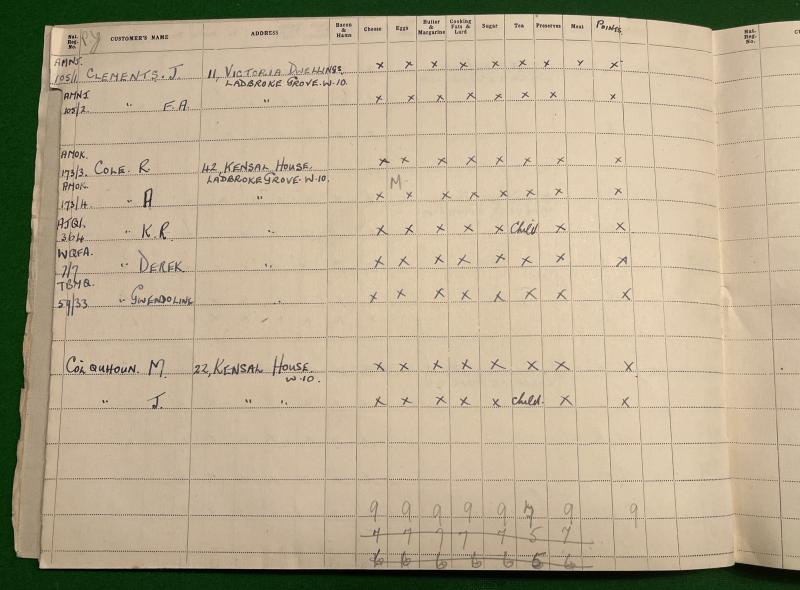 Nat. Reg. No. CUSTOMER'S NAME ADDRESS Bacon & Hams Cheese Eggs Butter & Margarine Cooking Fats & Lard Sugar Tea Preserves Meat POINTS.
AMNJ.
105/1 CLEMENTS. J. 11, VICTORIA DWELLINGS, x x x x x x x x x
LADBROKE GROVE. W.10.
AMNJ
105/2. " F.A. " x x x x x x x x
AMOK.
173/3. COLE. R 42, KENSAL HOUSE. x x x x x x x x
LADBROKE GROVE. W.10. M
AMOK.
173/4. " A " x x x x x x x x
AJQI.
364 " K.R. " x x x x x Child x x
WQFA.
7/7 " DEREK " x x x x x x x x
TBMQ.
59/33 " GWENDOLINE " x x x x x x x x
COLQUHOUN. M. 22, KENSAL HOUSE. x x x x x x x x
W.10.
" J. " " x x x x x Child. x x
9 9 9 9 9 7 9 9
7 7 7 7 7 5 7
6 6 6 6 6 5 6